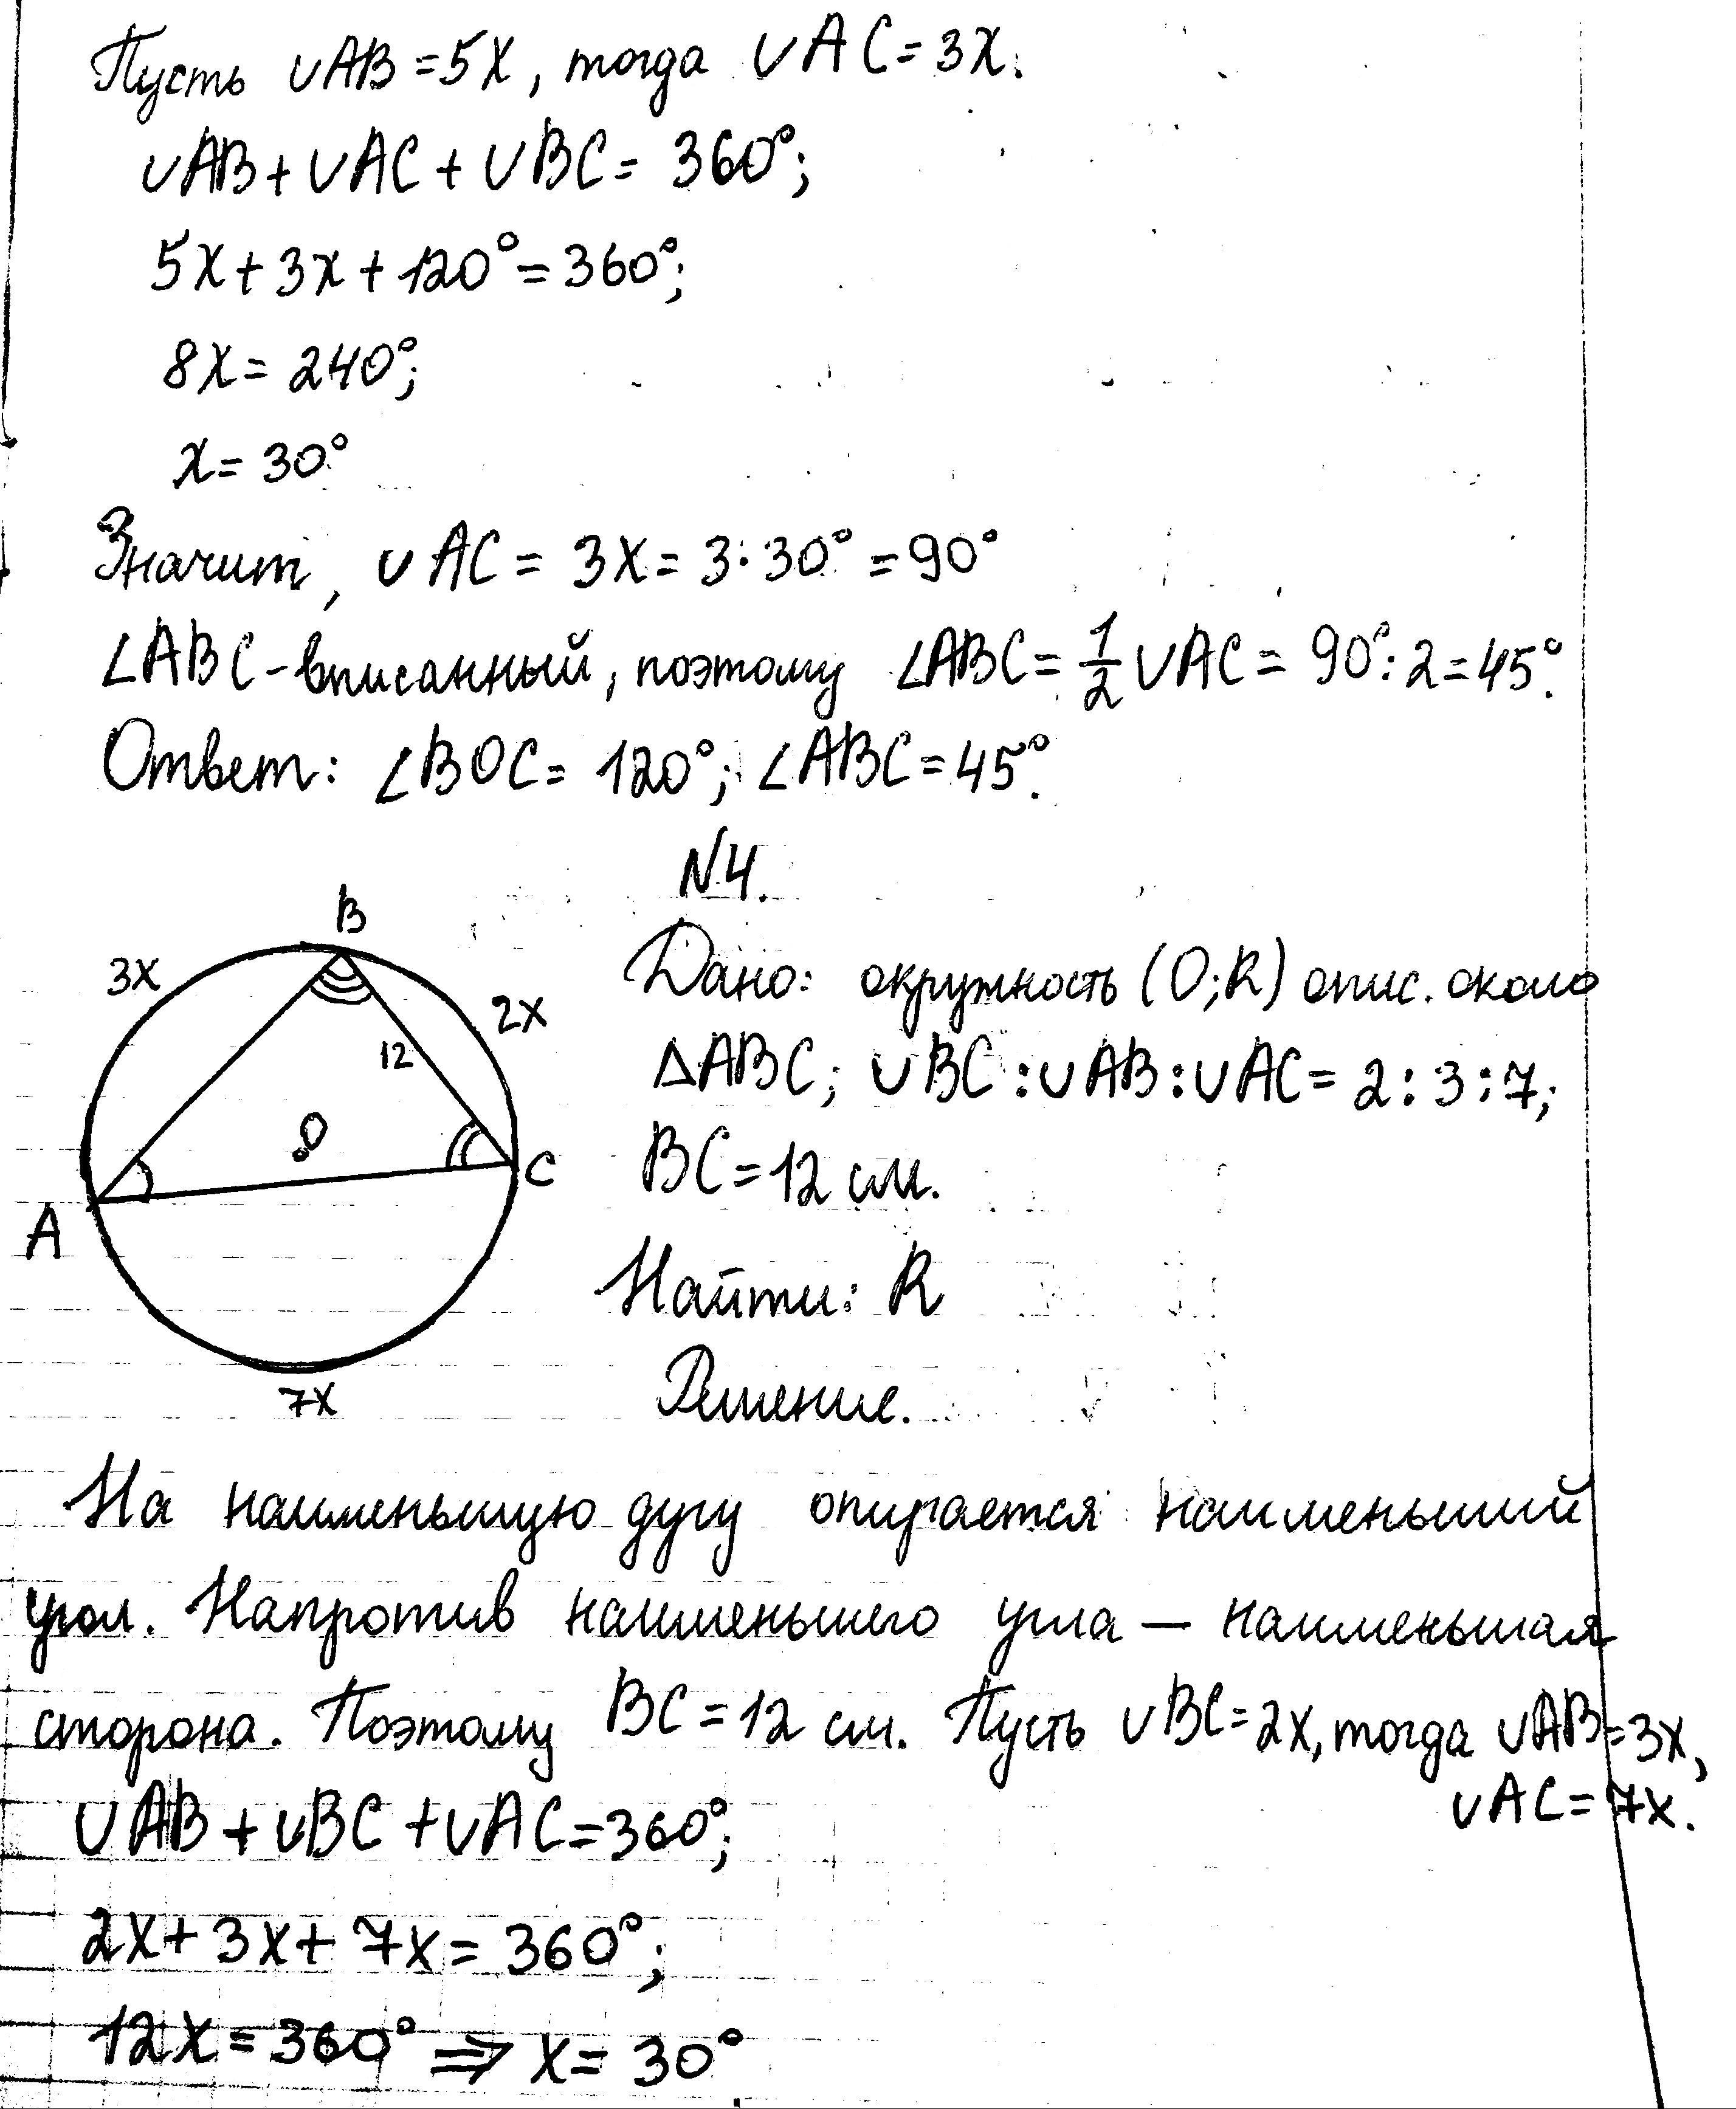 Пусть ∪AB=5x, тогда ∪AC=3x.
∪AB+∪AC+∪BC=360°;
5x+3x+120°=360°;
8x=240°;
x=30°
Значит, ∪AC=3x=3·30°=90°
∠ABC-вписанный, поэтому ∠ABC=1/2∪AC=90°:2=45°.
Ответ: ∠BOC=120°; ∠ABC=45°.
N4.
B
3x
2x
12
O
A
C
7x
Дано: окружность (O;R) опис. около
△ABC; ∪BC:∪AB:∪AC=2:3:7;
BC=12 см.
Найти: R
Решение.
На наименьшую дугу опирается наименьший
угол. Напротив наименьшего угла — наименьшая
сторона. Поэтому BC=12 см. Пусть ∪BC=2x, тогда ∪AB=3x,
∪AC=7x.
∪AB+∪BC+∪AC=360°;
2x+3x+7x=360°;
12x=360° ⇒ x=30°.